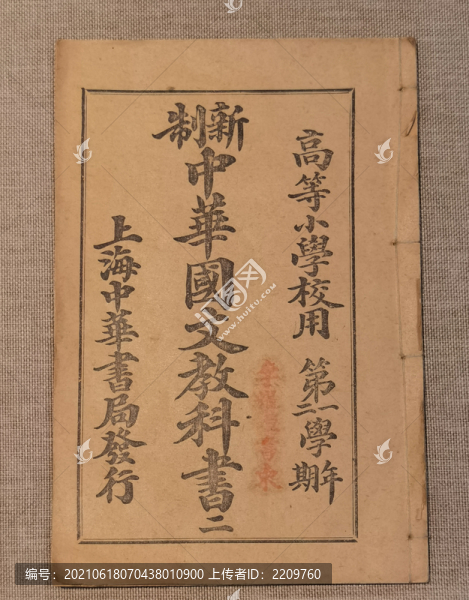 高等小學校用 第一學年 第二學期
新制中華國文教科書 二
上海中華書局發行
www.huitu.com
编号：20210618070438010900 上传者ID：2209760